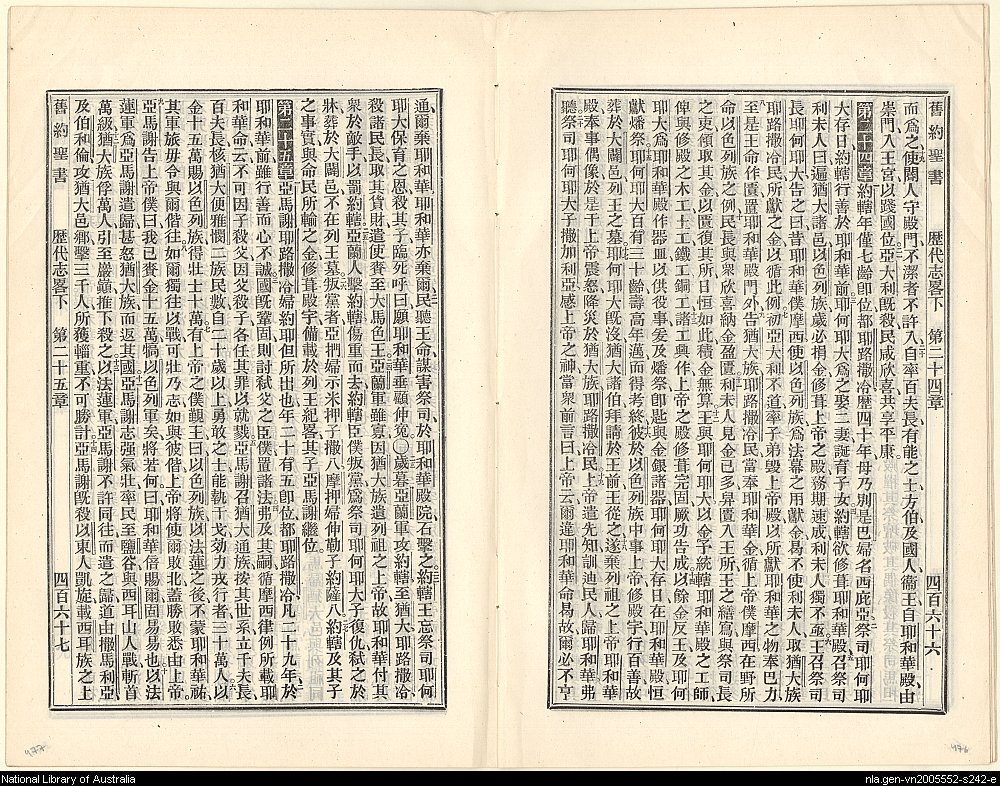 舊約聖書　歷代志畧下　第二十四章　四百六十六
而爲之使閽人守殿門不潔者不許入自率百夫長有能之士方伯及國人衞王自耶和華殿由
崇門入王宮以踐國位亞大利旣殺民咸欣喜共享平康
第二十四章約轄年僅七齡卽位都耶路撒冷歷四十年母乃別是巴婦名西庇亞祭司耶何耶
大存日約轄行善於耶和華前耶何耶大爲之娶二妻誕育子女約轄欲修葺耶和華殿召祭司
利未人曰遍猶大諸邑以色列族歲必捐金修葺上帝之殿務期速成利未人獨不亟王召祭司
長耶何耶大告之曰昔耶和華僕摩西使以色列族爲法幕之用獻金曷不使利未人取猶大族
耶路撒冷民所獻之金以循此例初亞大利不道率子弟毀上帝殿以所獻耶和華之物奉巴力
至是王命作匱置耶和華殿門外告猶大族耶路撒冷民當奉耶和華金循上帝僕摩西在野所
命以色列族之例民長與衆欣喜納金盈匱利未人見金已多舁匱入王所王之繕寫與祭司長
之吏傾取其金以匱復其所日恒如此積金無算王與耶何耶大以金予統轄耶和華殿之工師
俾與修殿之木工土工鐵工銅工諸工興作上帝之殿修葺完固厥功告成以餘金反王及耶何
耶大爲耶和華殿作器皿以供役事爰及燔祭卽匙與金銀諸器耶何耶大存日在耶和華殿恒
獻燔祭耶何耶大百有三十齡壽高年邁而得考終彼於以色列族中事上帝修殿宇行百善故
葬於大闢邑列王之墓耶何耶大旣沒猶大諸伯拜請於王前王從之遂棄列祖之上帝耶和華
殿奉事偶像於是干上帝震怒降災於猶大族耶路撒冷民上帝遣先知訓迪民人歸耶和華弗
聽祭司耶何耶大子撒加利亞感上帝之神當衆前言曰上帝云爾違耶和華命曷故爾必不亨
通爾棄耶和華耶和華亦棄爾民聽王命謀害祭司於耶和華殿院石擊之約轄王忘祭司耶何
耶大保育之恩殺其子臨死呼曰願耶和華垂顯伸冤〇歲暮亞蘭軍攻約轄至猶大耶路撒冷
殺諸民長取其貨財遣使賫至大馬色王亞蘭軍雖寡因猶大族遺列祖之上帝故耶和華付其
衆於敵手以罰約轄亞蘭人擊約轄傷重而去約轄臣僕叛黨爲祭司耶何耶大子復仇弑之於
牀葬於大闢邑不在列王墓叛黨者亞捫婦示米押子撒八摩押婦伸勒子約薩八約轄及其子
之事實與命民所輸之金修葺殿宇備載於列王紀畧其子亞馬謝繼位
第二十五章亞馬謝耶路撒冷婦約耶但所出也年二十有五卽位都耶路撒冷凡二十九年於
耶和華前雖行善而心不誠國旣鞏固則討弑父之臣僕置諸法弗及其嗣循摩西律例所載耶
和華命云不可因子殺父因父殺子各任其罪以就戮亞馬謝召猶大通族按其世系立千夫長
百夫長核猶大便雅憫二族民數自二十歲以上勇敢之士能執干戈効力戎行者三十萬人以
金十五萬賜以色列族得壯士十萬有上帝之僕覲王曰以色列族以法蓮之後不蒙耶和華祐
其軍旅毋令與爾偕往如爾獨往以戰可壯乃志如與彼偕上帝將使爾敗北蓋勝敗悉由上帝
亞馬謝告上帝僕曰我已賫金十五萬犒以色列軍矣將若何曰耶和華倍賜爾固易易也以法
蓮軍爲亞馬謝遣歸甚怒猶大族而返其國亞馬謝志强氣壯率民至鹽谷與西耳山人戰斬首
萬級猶大族俘萬人引至巖巓推下殺之以法蓮軍亞馬謝不許同往而遣之歸道由撒馬利亞
及伯和倫攻猶大邑鄉擊三千人所獲輜重不可勝計亞馬謝旣殺以東人凱旋載西耳族之上
舊約聖書　歷代志畧下　第二十五章　四百六十七
477
476
National Library of Australia
nla.gen-vn2005552-s242-e